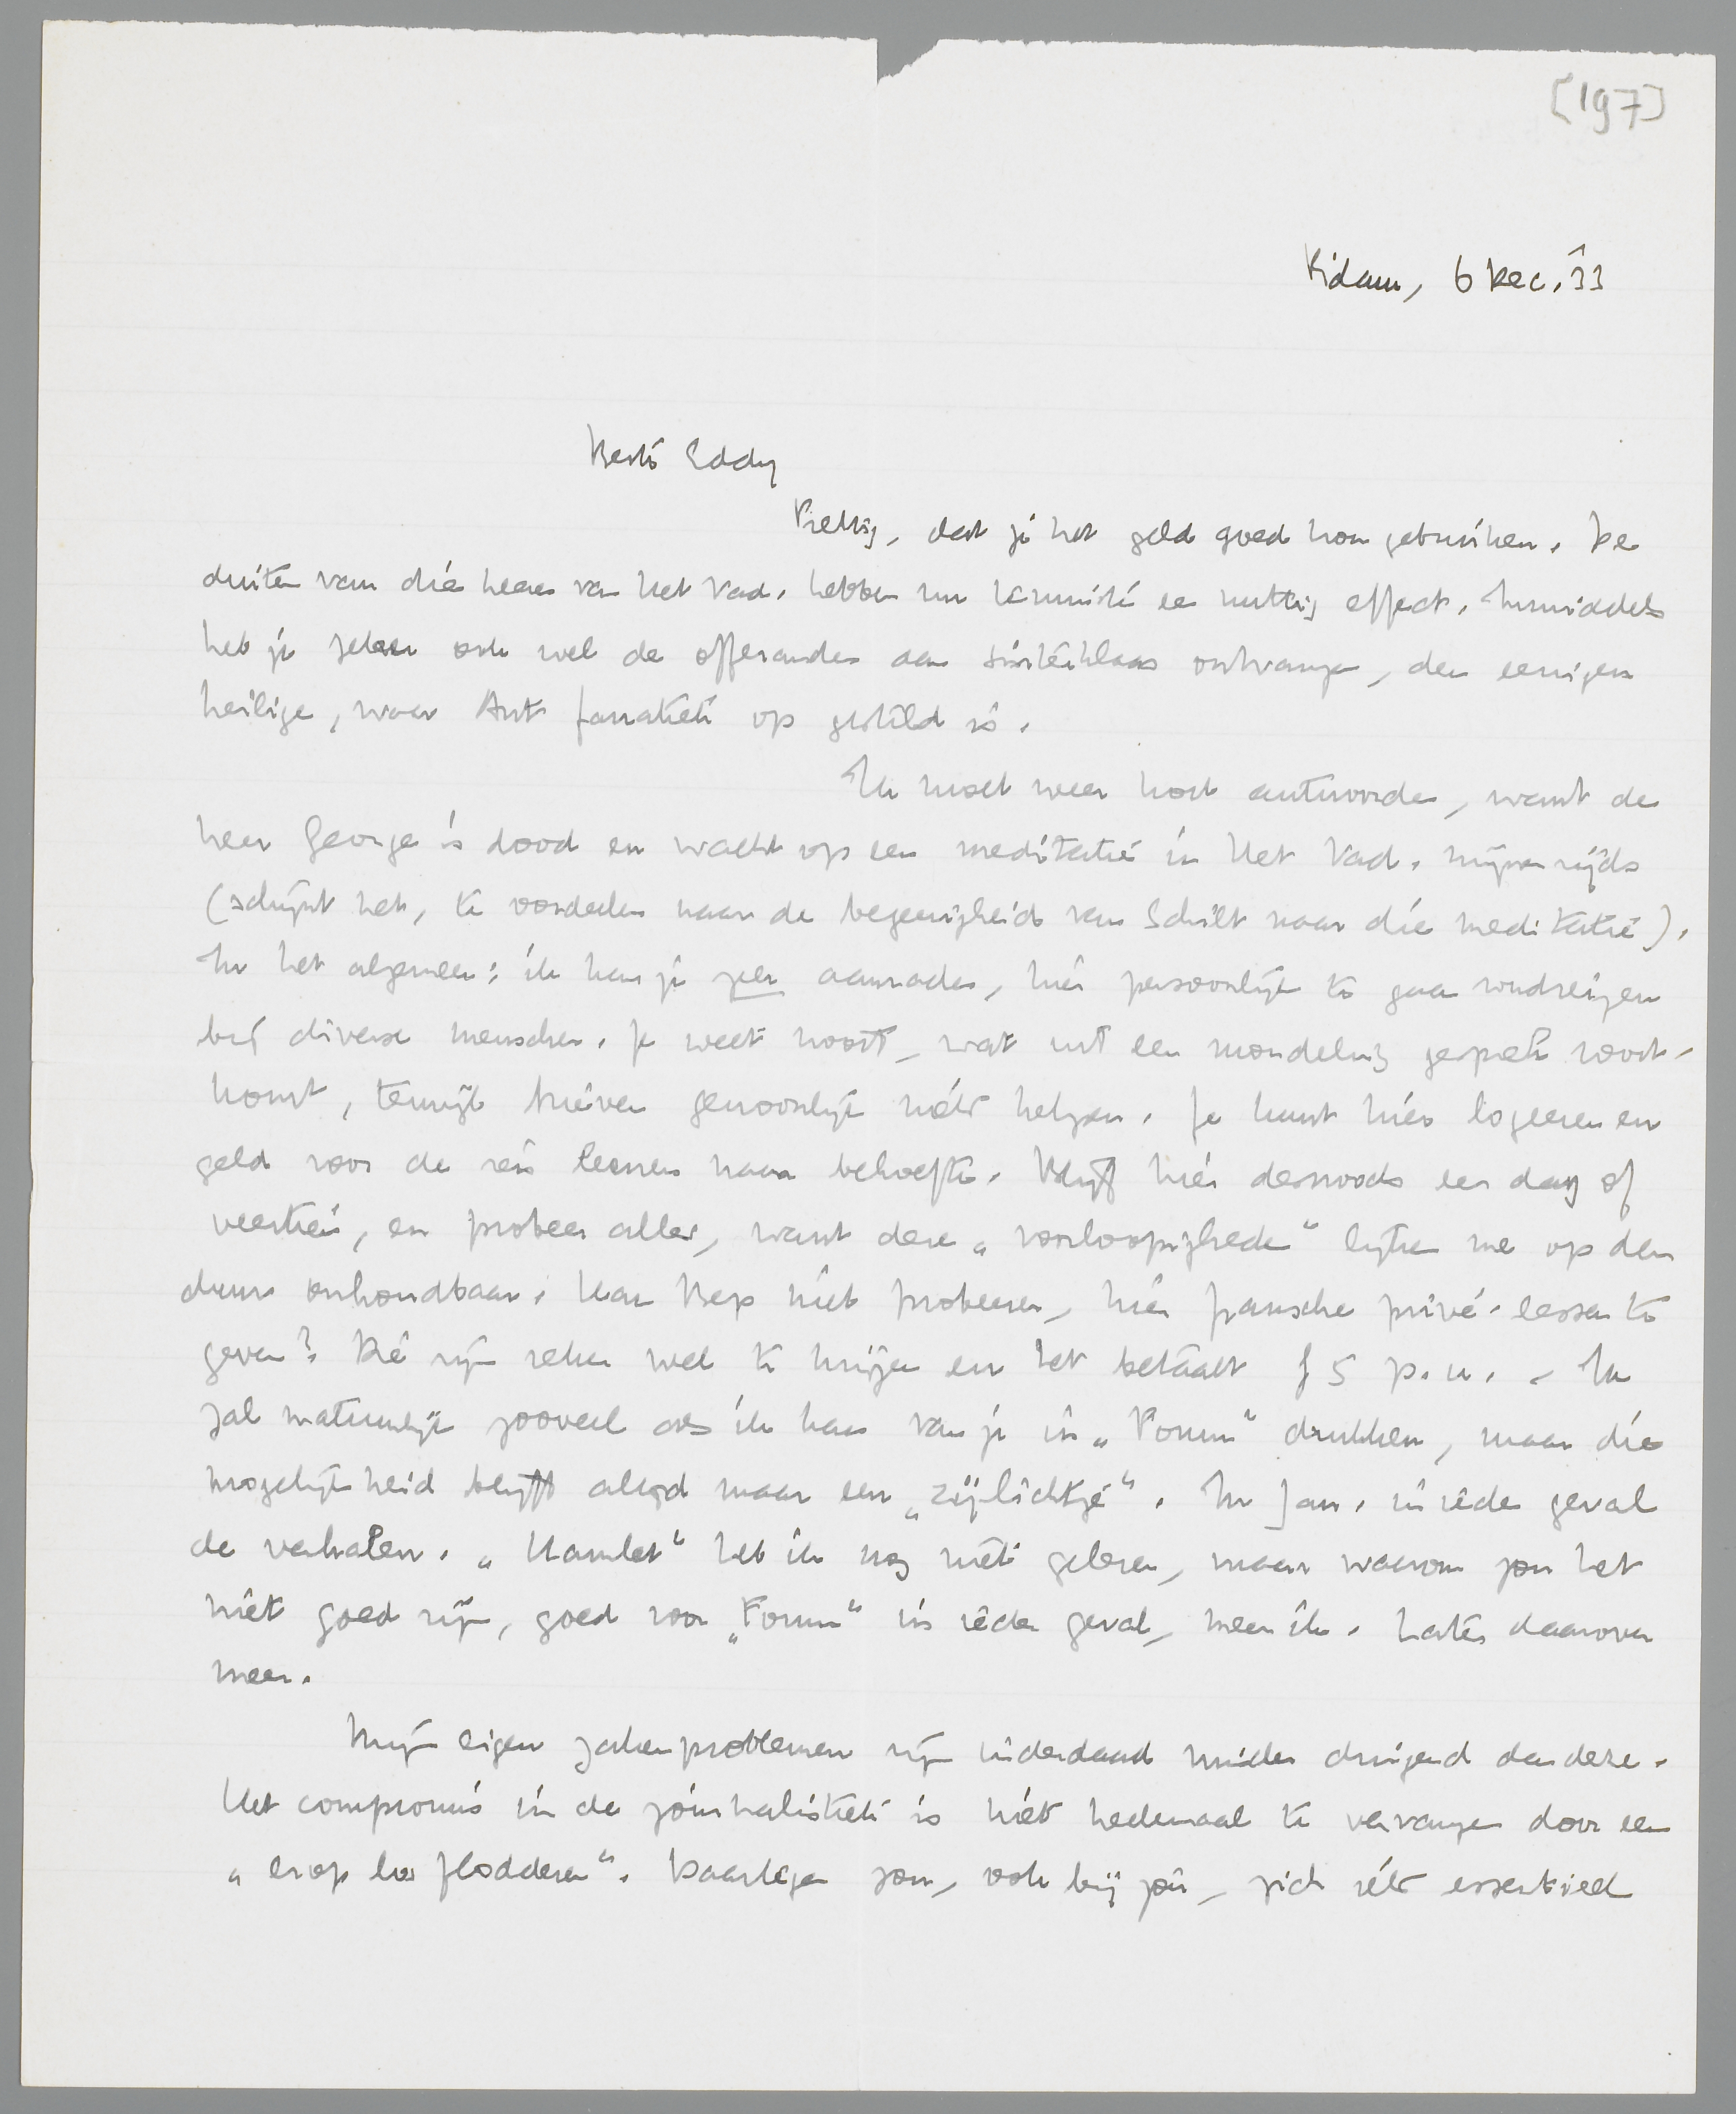 [197]
R'dam, 6 Dec. '33
Beste Eddy
Prettig, dat je het geld goed kon gebruiken. De
duiten van die heeren van Het Vad. hebben nu tenminste een nuttig effect. Inmiddels
heb je zeker ook wel de offerande aan Sinterklaas ontvangen, den eenigen
heilige, waar Ant fanatiek op gesteld is.
Ik moet weer kort antwoorden, want de
heer George is dood en wacht op een meditatie in Het Vad. mijnerzijds
(schijnt het, te oordeelen naar de begeerigheid van Schilt naar die meditatie).
In het algemeen: ik kan je zeer aanraden, hier persoonlijk te gaan rondreizen
bij diverse menschen. Je weet nooit, wat uit een mondeling gesprek voort-
komt, terwijl brieven gewoonlijk niets helpen. Je kunt hier logeeren en
geld voor de reis leenen naar behoefte. Blijf hier desnoods een dag of
veertien, en probeer alles, want deze „voorloopigheden" lijken me op den
duur onhoudbaar. Kan Bep niet probeeren, hier fransche privé-lessen te
geven? Die zijn zeker wel te krijgen en het betaalt f 5 p. u. - Ik
zal natuurlijk zooveel als ik kan van je in „Forum" drukken, maar die
mogelijkheid blijft altijd maar een „zijlichtje". In Jan. in ieder geval
de verhalen. „Hamlet" heb ik nog niet gelezen, maar waarom zou het
niet goed zijn, goed voor „Forum" in ieder geval, meen ik. Later daarover
meer.
Mijn eigen zakenproblemen zijn inderdaad minder dringend dan deze.
Het compromis in de journalistiek is niet heelemaal te vervangen door een
„erop los flodderen". Daartegen zou, ook bij jou, zich iets essentieel